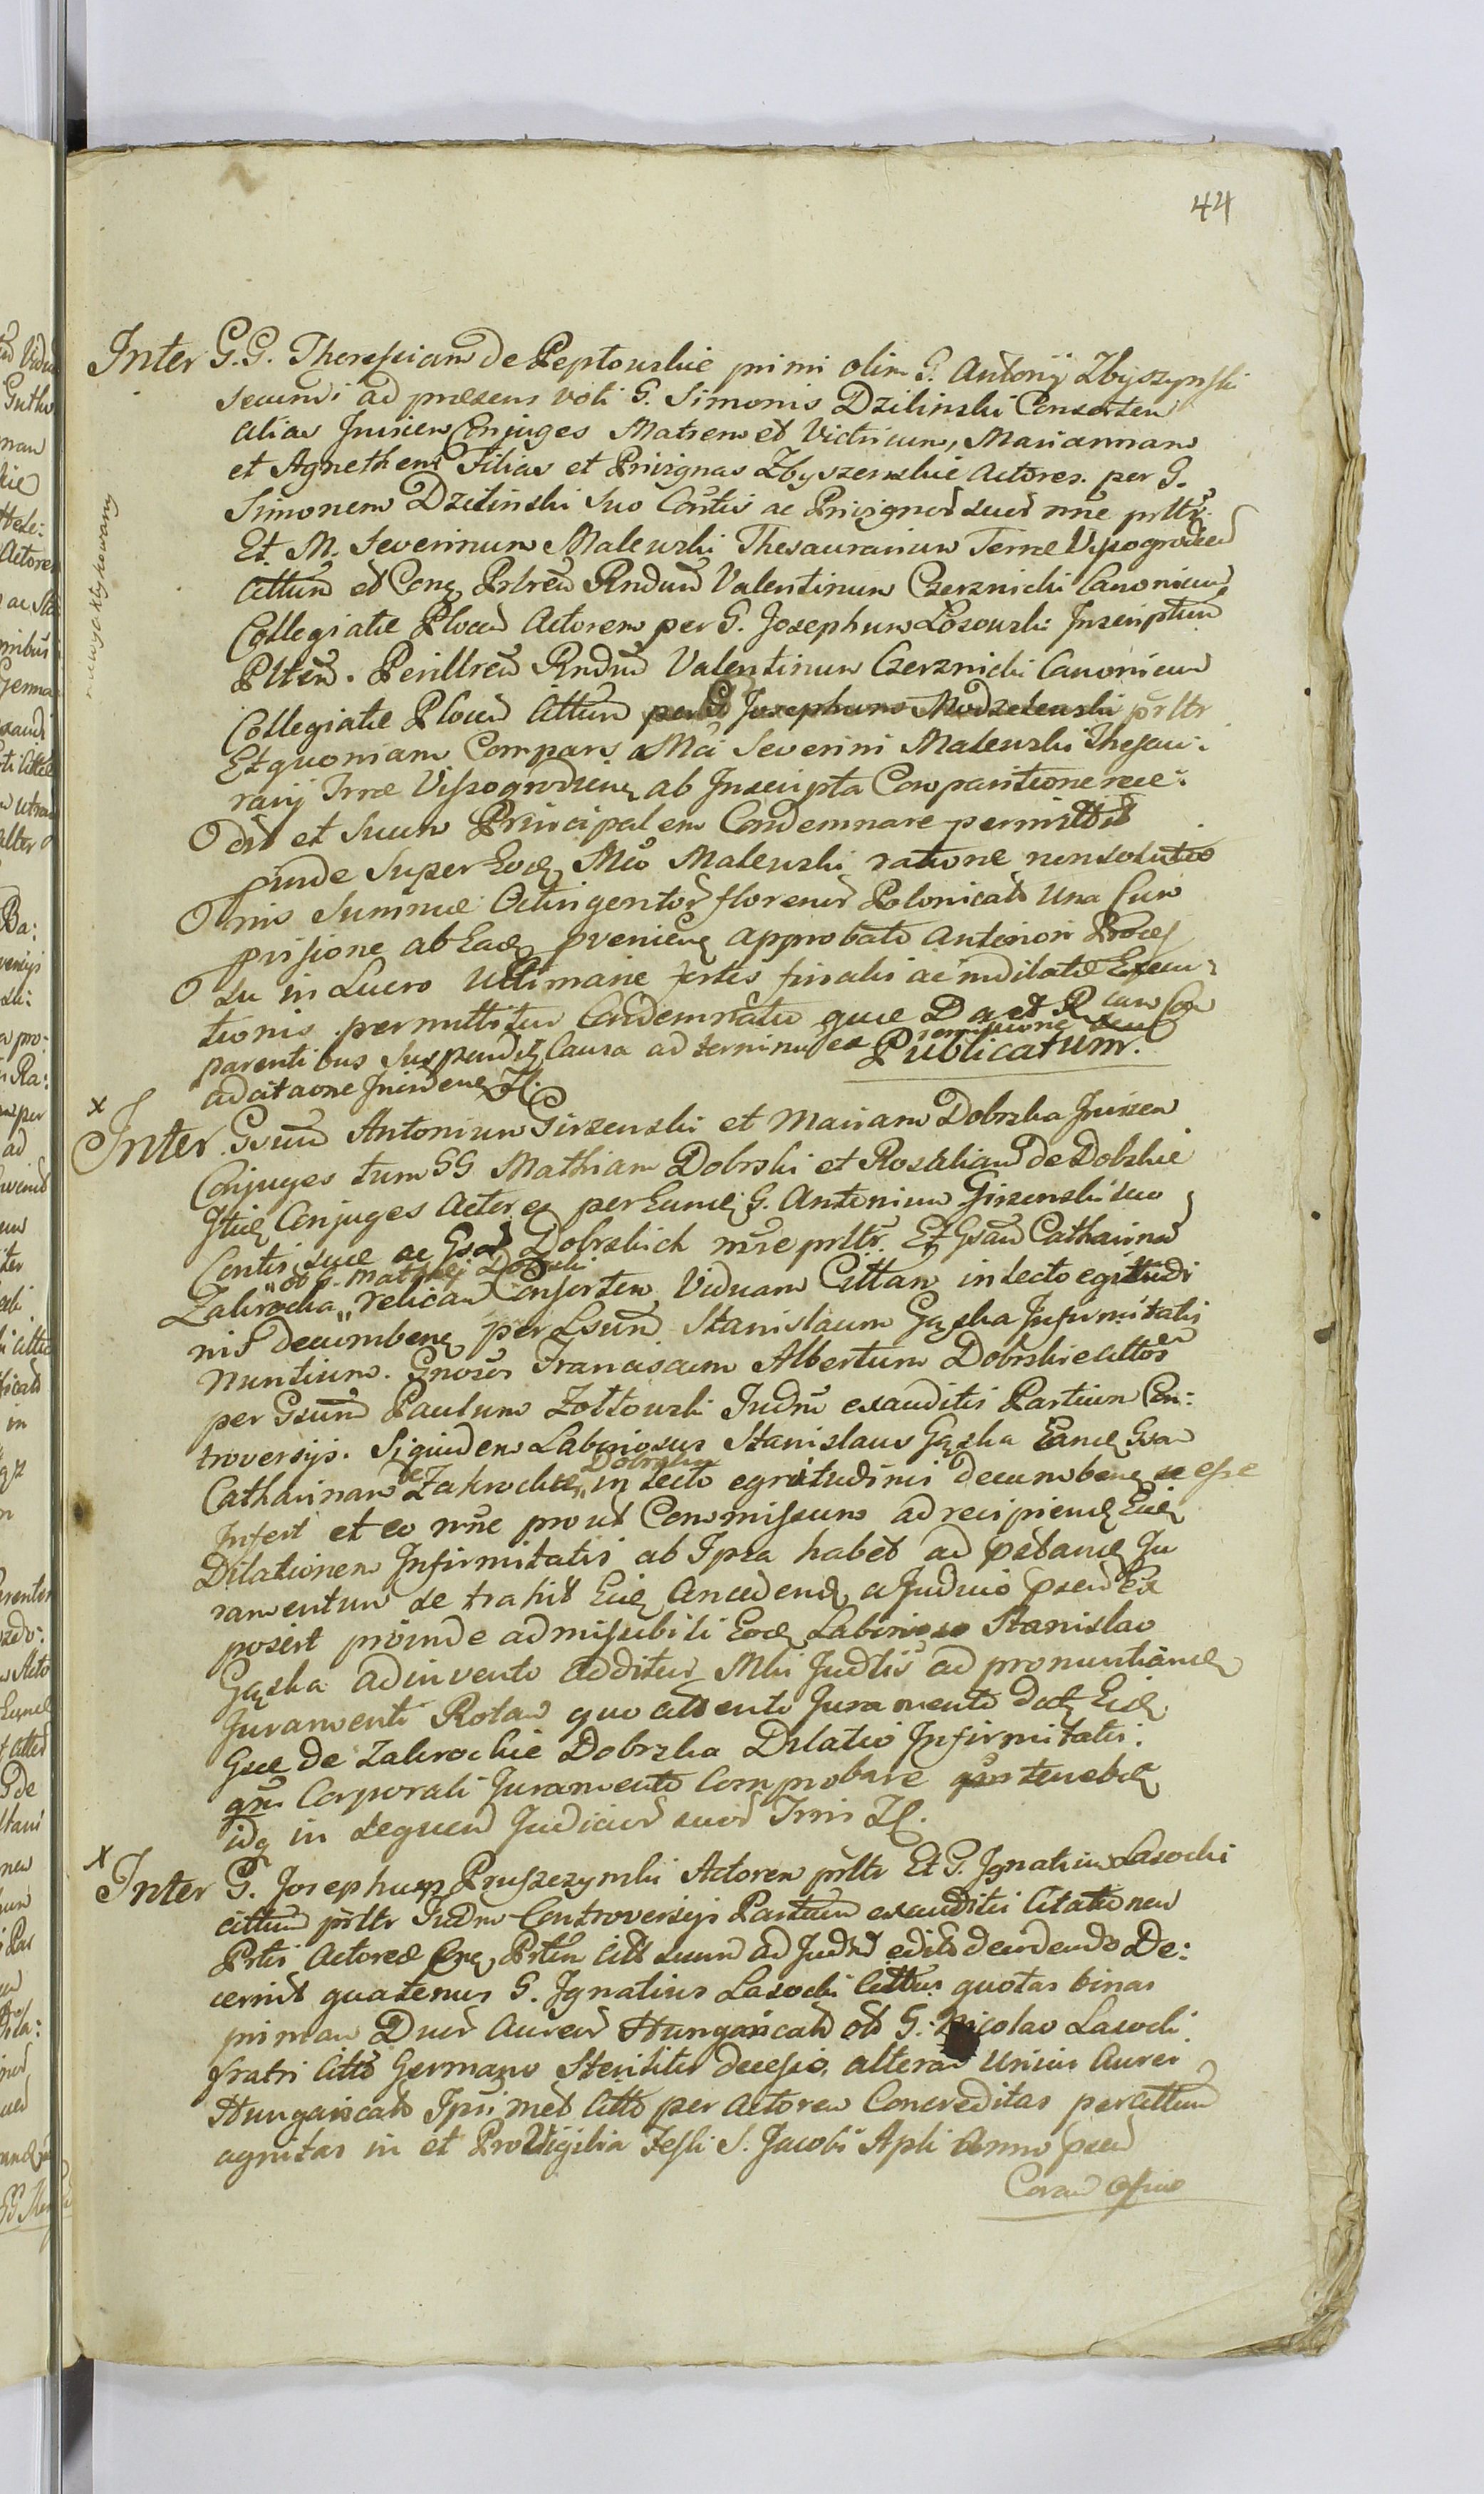 44
Inter G.G. Theressiam de Peptowskie primi olim G. Antonij Zbyszynski
secundi ad præsens voti G. Simonis Dzilinski Consortem
alias Invicem Conjuges Matrem et Vitricum, Mariannam
et Agnethem Filias et Privignas Zbyszenskie Actores per G.
Simonem Dzilinski suo Contis ac Privignar suar nne prltr.
Et M. Severinum Malewski Thesaurarium Terræ Vyszogrod
Cittum et Conq Prtrem Rndum Valentinum Czerznicki Canonicum
Collegiatæ Plocen Actorem per G. Josephum Losowski Inscriptum
Plten. Perillrem Rndum Valentinum Czerznicki Canonicum
Collegiatæ Plocen Cittum per G Josephum Modzelewski prltr
Et quoniam Compars Mci Severini Malewski Thesau:
rarij Trræ Viszogroden ab Inscripta Comparitione rece:
dit et suum Principalem Condemnare permittit
pinde super Eod Mco Malewski ratione non soluti
nis Summæ Octingentor florenor Polonicals Una Cum
provisione ab Ead pvenien approbato anteriori Proces
su in Lucro Ultimarie fortis finalis ac nudilatæ Execu:
tionis permittitur Condemnatio quæ D a et R cum Com
parentibus suspendit Causa ad terminum ex remissione seu
adcitaone Inciden Zl. Publicatum.
niewyekstysowany
x
Inter Gsum Antonium Girzenski et Mariam Dobrska Invicem
Conjuges tum GG Mathiam Dobrski et Rosaliam de Dobskie
Itid Conjuges Actores per Eund G. Antonium Girzenski suo
Contis suæ ac Gsor Dobrskich nne prltr. Et Gsam Catharinam
Zakrocka " ol G. Mathiej Dobrski " relictam Consortem Viduam Cittam in lecto egritudi
nis decumben per Lsum Stanislaum Gąska Infirmitatis
Nuntium. Gnosos Franciscum Albertum Dobrskie Cittos
per Gsum Paulum Żołtowski Judm exauditis Partium Con:
troversijs. Siquidem Laboriosus Stanislaus Gąska Eand Gsam
Catharinam de Zakrockie " Dobrska " in lecto egritudinis decumben se esse
Infert et eo nne prout Commissum ad recipiend Eid
Dilationem Infirmitatis ab Ipsa habet ad pstand Ju
ramentum se trahit Eid Anceden a Judicio psen Ex
poscit proinde admissibili Eod Laborioso Stanislao
Gąska adinvento additur Mtri Judtis ad pronuntiand
Juramenti Rotam quo attento Juramento datq Eid
Gsæ de Zakrockie Dobrska Dilatio Infirmitatis.
qm Corporali Juramento Comprobare tenebit
idq in sequen Judicior suor Trmi Zl.
x
Inter G. Josephum Pruszczynski Actorem prltr Et G. Ignatium Lasocki
cittum prltr Judm Controversijs Partium exauditis Citationem
Prtis Actoreæ Cnq Prtem Citt suum ad Judm edito decidendo De:
cernit quatenus G. Ignatius Lasocki Cittus quotas binas
primam Duor Aureor Hungaricals ol G. Nicolao Lasocki
fratri Citto Germano Steriliter decesso, alteram Unius Aurei
Hungaricals Ipsimet Citto per Actorem Concreditas per Cittum
agnitas in et Pro Vigilia Festi S. Jacobi Apli Anno psen
Coram Officio